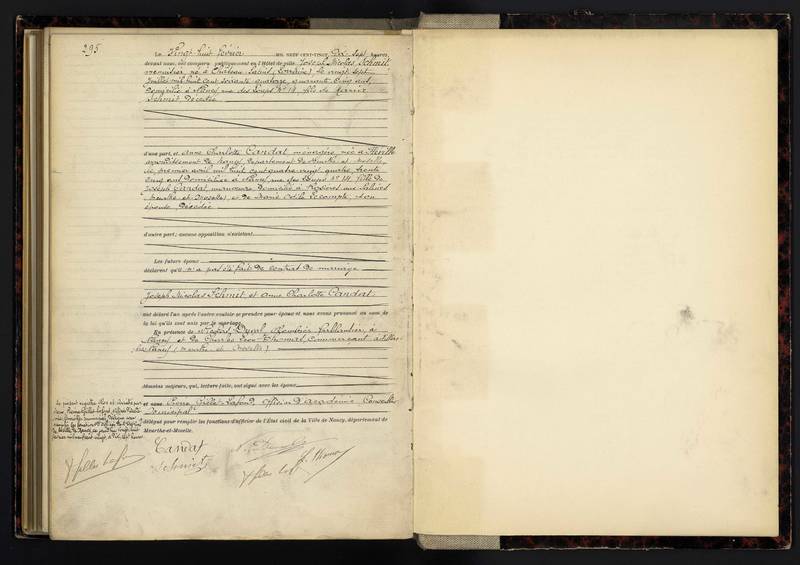 295
Le Vingt huit février MIL NEUF CENT-VINGT, Dix Sept heures,
devant nous, ont comparu publiquement en l'Hôtel de ville Joseph Nicolas Schmit
menuisier, né à Château Salins (Lorraine) le vingt sept
Juillet mil huit cent soixante quatorze, quarante cinq ans,
domicilié à Nancy rue des Loups Nº 14, fils de
Schmit Décédé
d'une part, et Anne Charlotte Candat ménagère, née à
arrondissement de Nancy, Département de Meurthe et Moselle
le premier avril mil huit cent quatre vingt quatre, trente
cinq ans Domiciliée à Nancy rue des Loups Nº 14 fille de
Joseph Candat, manœuvre Domicilié à Rosières aux Salines
(Meurthe et Moselle) et de Marie Lecompte, son
épouse, Décédée
d'autre part; aucune opposition n'existant.
Les futurs époux
déclarent qu'il n'a pas été fait de contrat de mariage
Joseph Nicolas Schmit et Anne Charlotte Candat
ont déclaré l'un après l'autre vouloir se prendre pour époux et nous avons prononcé au nom de
la loi qu'ils sont unis par le mariage.
En présence de Duval, ferblantier, à
Nancy et de Charles Léon Thomas, commerçant à
Nancy (Meurthe et Moselle)
témoins majeurs, qui, lecture faite, ont signé avec les époux
et nous Gillet-Lafond, Officier d'Académie Conseiller
Municipal
délégué pour remplir les fonctions d'officier de l'État civil de la Ville de Nancy, département de
Meurthe-et-Moselle.
Le présent registre clos et arrêté par
Candat
Schmit